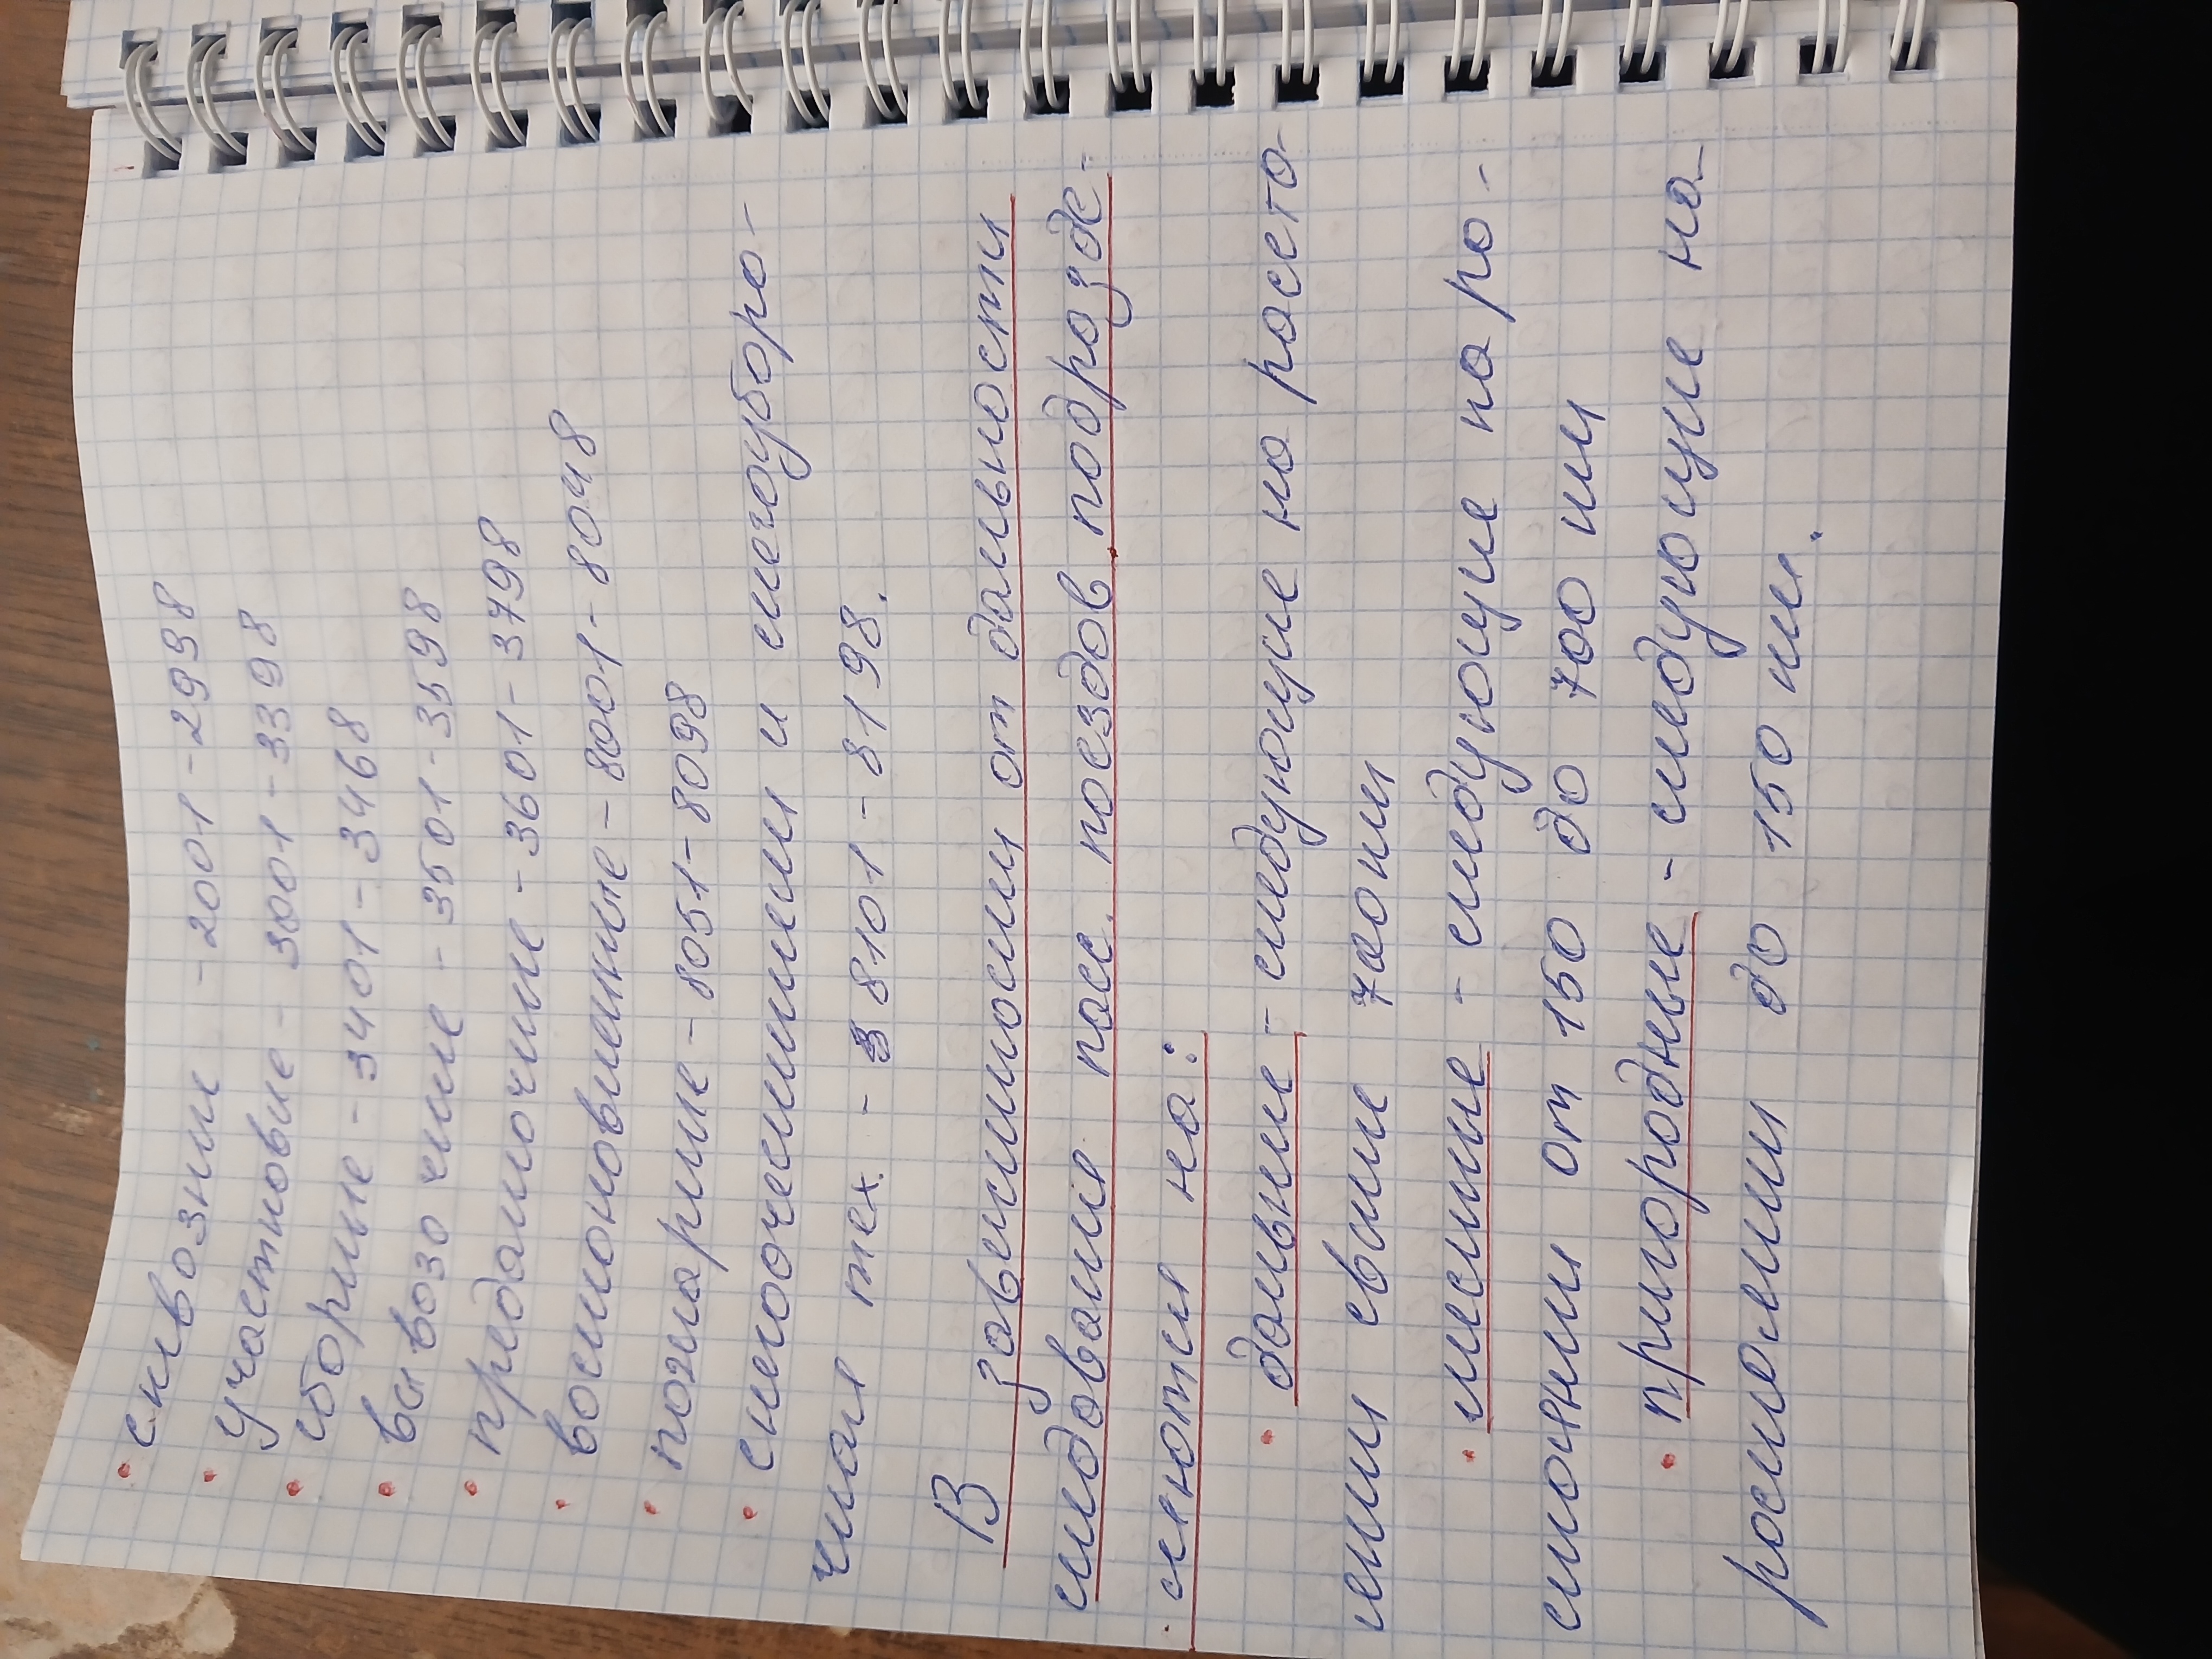 • сквозные - 2001 - 2998
• участковые - 3001 - 3398
• сборные - 3401 - 3468
• вывозочные - 3501 - 3598
• предаточные - 3601 - 3798
• восстановленные - 8001 - 8048
• пожарные - 8051 - 8098
• снегоочестителем и снегоуборо-
чная тех. - 8101 - 8198.
В зависимости от дальности
следование пасс. поездов подразде-
ляются на:
• дальные - следующие на расто-
янии свыше 700 км
• местные - следующие на ра-
стоянии от 150 до 700 км
• пригородные - следующие на
расстоянии до 150 км.